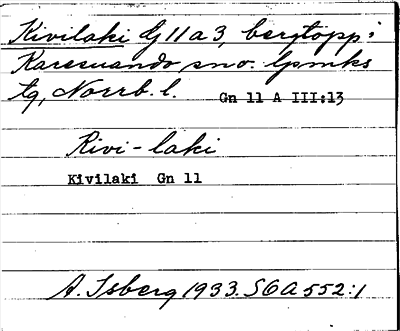 Kivilaki G 11 a 3, bergtopp i
Karesuando sn o. lpmks
tg, Norrb. l. Gn 11 A III:13
Kivi-laki
Kivilaki Gn 11
A. Isberg 1933. SOA 552:1